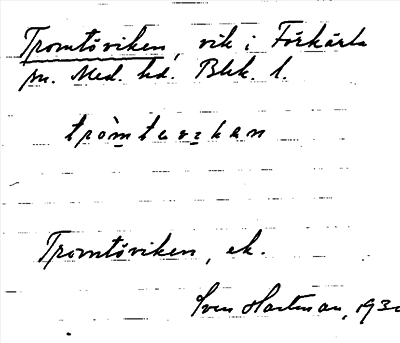 Tromtöviken, vik i Förkärla
sn. Med. hd. Blek. l.
Tromtöviken, ek.
Sven Hartman, 193